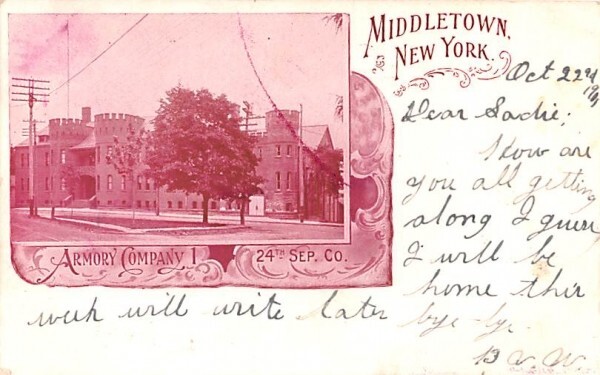 MIDDLETOWN,
NEW YORK.
Oct 22nd
Dear Sadie;
How are
you all getting
along I guess
I will be
home this
week will write later
bye-bye-
B V W
ARMORY COMPANY 1
24TH SEP. CO.